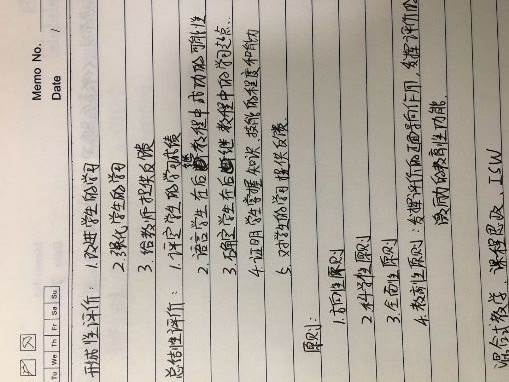 Memo No.
Date /
Tu We Th Fr Sa Su
形成性评价：1.改进学生的学习
2.强化学生的学习
3.给教师提供反馈
总结性评价：1.评定学生的学习成绩
2.语言学生在后继教程中成功的可能性
3.确定学生在后继教程中的学习起点.
4.证明学生掌握知识、技能的程度和能力
5.对学生的学习提供反馈
原则：
1.方向性原则
2.科学性原则
3.全面性原则
4.教育性原则：发挥评价的正面导向作用，发挥评价的
激励的教育性功能.
混合式教学，课程思政 ISW